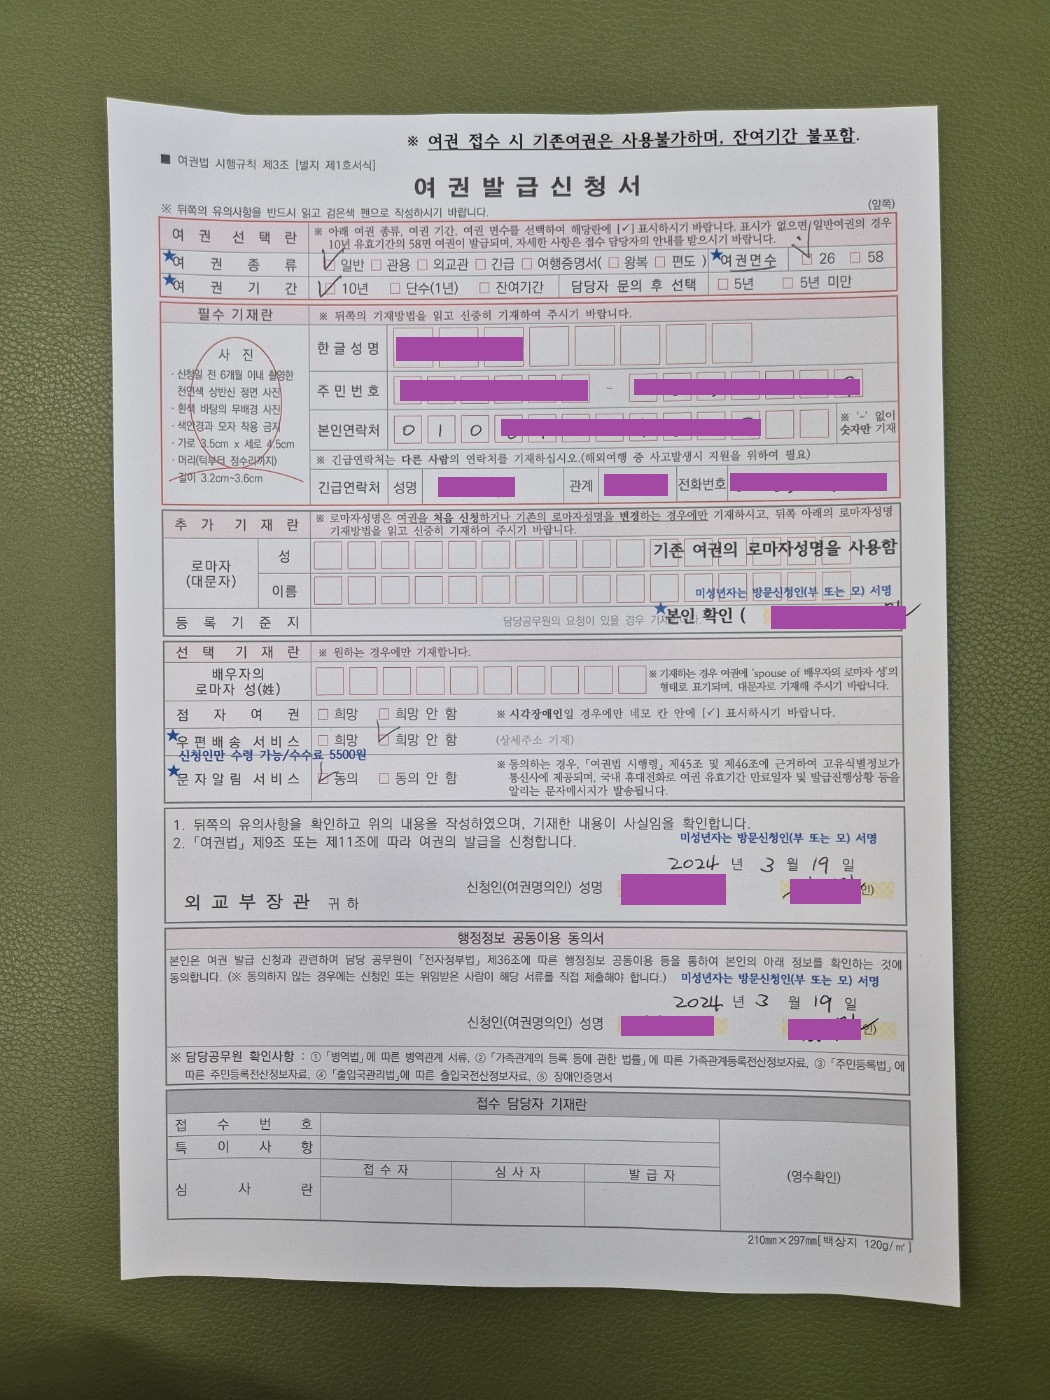 ※ 여권 접수 시 기존여권은 사용불가하며, 잔여기간 불포함.
■ 여권법 시행규칙 제3조 [별지 제1호서식]
여권발급신청서
※ 뒤쪽의 유의사항을 반드시 읽고 검은색 펜으로 작성하시기 바랍니다.
(앞쪽)
여 권 선 택 란
※ 아래 여권 종류, 여권 기간, 여권 면수를 선택하여 해당란에 [✓] 표시하시기 바랍니다. 표시가 없으면 일반여권의 경우
10년 유효기간의 58면 여권이 발급되며, 자세한 사항은 접수 담당자의 안내를 받으시기 바랍니다.
★여 권 종 류 ☑ 일반 □ 관용 □ 외교관 □ 긴급 □ 여행증명서( □ 왕복 □ 편도 ) ★여권면수 ☑ 26 □ 58
★여 권 기 간 ☑ 10년 □ 단수(1년) □ 잔여기간 담당자 문의 후 선택 □ 5년 □ 5년 미만
필수 기재란 ※ 뒤쪽의 기재방법을 읽고 신중히 기재하여 주시기 바랍니다.
사 진
· 신청일 전 6개월 이내 촬영한
천연색 상반신 정면 사진
· 흰색 바탕의 무배경 사진
· 색안경과 모자 착용 금지
· 가로 3.5cm x 세로 4.5cm
· 머리(턱부터 정수리까지)
길이 3.2cm~3.6cm
한글성명
주민번호 –
본인연락처 0 1 0
※ '-' 없이
숫자만 기재
※ 긴급연락처는 다른 사람의 연락처를 기재하십시오.(해외여행 중 사고발생시 지원을 위하여 필요)
긴급연락처 성명 관계 전화번호
추 가 기 재 란
※ 로마자성명은 여권을 처음 신청하거나 기존의 로마자성명을 변경하는 경우에만 기재하시고, 뒤쪽 아래의 로마자성명
기재방법을 읽고 신중히 기재하여 주시기 바랍니다.
로마자
(대문자)
성
기존 여권의 로마자성명을 사용함
이름
미성년자는 방문신청인(부 또는 모) 서명
★본인 확인 (
등 록 기 준 지 담당공무원의 요청이 있을 경우
선 택 기 재 란 ※ 원하는 경우에만 기재합니다.
배우자의
로마자 성(姓)
※ 기재하는 경우 여권에 'spouse of 배우자의 로마자 성'의
형태로 표기되며, 대문자로 기재해 주시기 바랍니다.
점 자 여 권 □ 희망 □ 희망 안 함 ※ 시각장애인일 경우에만 네모 칸 안에 [✓] 표시하시기 바랍니다.
★우편배송 서비스 □ 희망 ☑ 희망 안 함 (상세주소 기재)
신청인만 수령 가능/수수료 5500원
★문자알림 서비스 ☑ 동의 □ 동의 안 함
※ 동의하는 경우, 「여권법 시행령」 제45조 및 제46조에 근거하여 고유식별정보가
통신사에 제공되며, 국내 휴대전화로 여권 유효기간 만료일자 및 발급진행상황 등을
알리는 문자메시지가 발송됩니다.
1. 뒤쪽의 유의사항을 확인하고 위의 내용을 작성하였으며, 기재한 내용이 사실임을 확인합니다.
2. 「여권법」 제9조 또는 제11조에 따라 여권의 발급을 신청합니다.
미성년자는 방문신청인(부 또는 모) 서명
2024 년 3 월 19 일
신청인(여권명의인) 성명 인)
외교부장관 귀하
행정정보 공동이용 동의서
본인은 여권 발급 신청과 관련하여 담당 공무원이 「전자정부법」 제36조에 따른 행정정보 공동이용 등을 통하여 본인의 아래 정보를 확인하는 것에
동의합니다. (※ 동의하지 않는 경우에는 신청인 또는 위임받은 사람이 해당 서류를 직접 제출해야 합니다.)
미성년자는 방문신청인(부 또는 모) 서명
2024 년 3 월 19 일
신청인(여권명의인) 성명 인)
※ 담당공무원 확인사항 : ① 「병역법」에 따른 병역관계 서류, ② 「가족관계의 등록 등에 관한 법률」에 따른 가족관계등록전산정보자료, ③ 「주민등록법」에
따른 주민등록전산정보자료, ④ 「출입국관리법」에 따른 출입국전산정보자료, ⑤ 장애인증명서
접수 담당자 기재란
접 수 번 호
특 이 사 항
심 사 란
접수자 심사자 발급자
(영수확인)
210㎜×297㎜[백상지 120g/㎡]